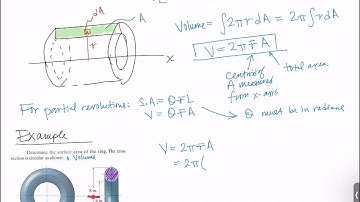 dA
A
r
x
Volume = ∫2πrdA = 2π∫rdA
V = 2πr̄A
centroid of A measured from x-axis
total area
For partial revolutions: S.A. = θr̄L
V = θr̄A
θ must be in radians
Example
Determine the surface area of the ring. The cross
section is circular as shown. & Volume
V = 2πr̄A
= 2π(